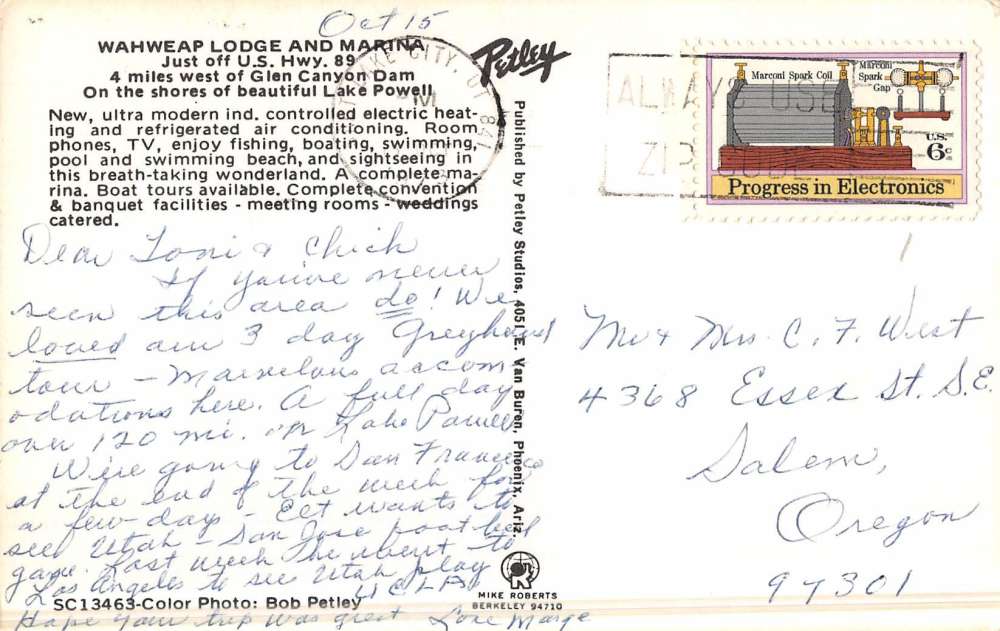 Oct 15
WAHWEAP LODGE AND MARINA
Just off U.S. Hwy. 89
4 miles west of Glen Canyon Dam
On the shores of beautiful Lake Powell
New, ultra modern ind. controlled electric heat-
ing and refrigerated air conditioning. Room
phones, TV, enjoy fishing, boating, swimming,
pool and swimming beach, and sightseeing in
this breath-taking wonderland. A complete ma-
rina. Boat tours available. Complete convention
& banquet facilities - meeting rooms - weddings
catered.
Dear Toni & Chick
If you've never
seen this area do! We
loved our 3 day Greyhound
tour - Marvelous accom
odations here. A full day
over 120 mi. on Lake Powell
We're going to San Francisco
at the end of the week for
a few days - wants to
see Utah - San Jose football
game. Last week he went to
Los Angeles to see Utah play
UCLA
SC13463-Color Photo: Bob Petley
Hope your trip was great Love Marge
Petley
Published by Petley Studios, 4051 E. Van Buren, Phoenix, Ariz.
MIKE ROBERTS
BERKELEY 94710
LAKE CITY, UT 841
PM
ALWAYS USE
ZIP CODE
Marconi Spark Coil
Marconi
Spark
Gap
U.S.
6c
Progress in Electronics
Mr & Mrs. C. F. West
4368 Essex St. S.E.
Salem,
Oregon
97301